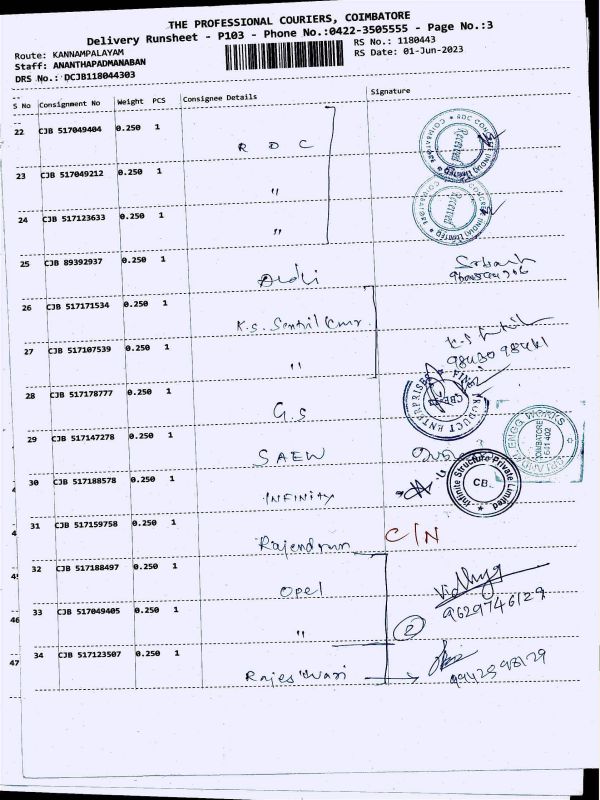 THE PROFESSIONAL COURIERS, COIMBATORE
Delivery Runsheet - P103 - Phone No.:0422-3505555 - Page No.:3
Route: KANNAMPALAYAM
RS No.: 1180443
Staff: ANANTHAPADMANABAN
RS Date: 01-Jun-2023
DRS No.: DCJB118044303
S No Consignment No Weight PCS Consignee Details Signature
22 CJB 517049404 0.250 1 R D C
23 CJB 517049212 0.250 1 "
24 CJB 517123633 0.250 1 "
25 CJB 89392937 0.250 1
26 CJB 517171534 0.250 1 K.S. Senthil Cmr
27 CJB 517107539 0.250 1 " 98430 98461
28 CJB 517178777 0.250 1 G.S
29 CJB 517147278 0.250 1 SAEW
COIMBATORE
641 402
30 CJB 517188578 0.250 1 INFINITY
Infinite Structure Private Limited
CB.
31 CJB 517159758 0.250 1 Rajendran C/N
32 CJB 517188497 0.250 1 Opel Vidhya
9629746129
33 CJB 517049405 0.250 1 " 2
34 CJB 517123507 0.250 1 Rajeshwari
45
46
47